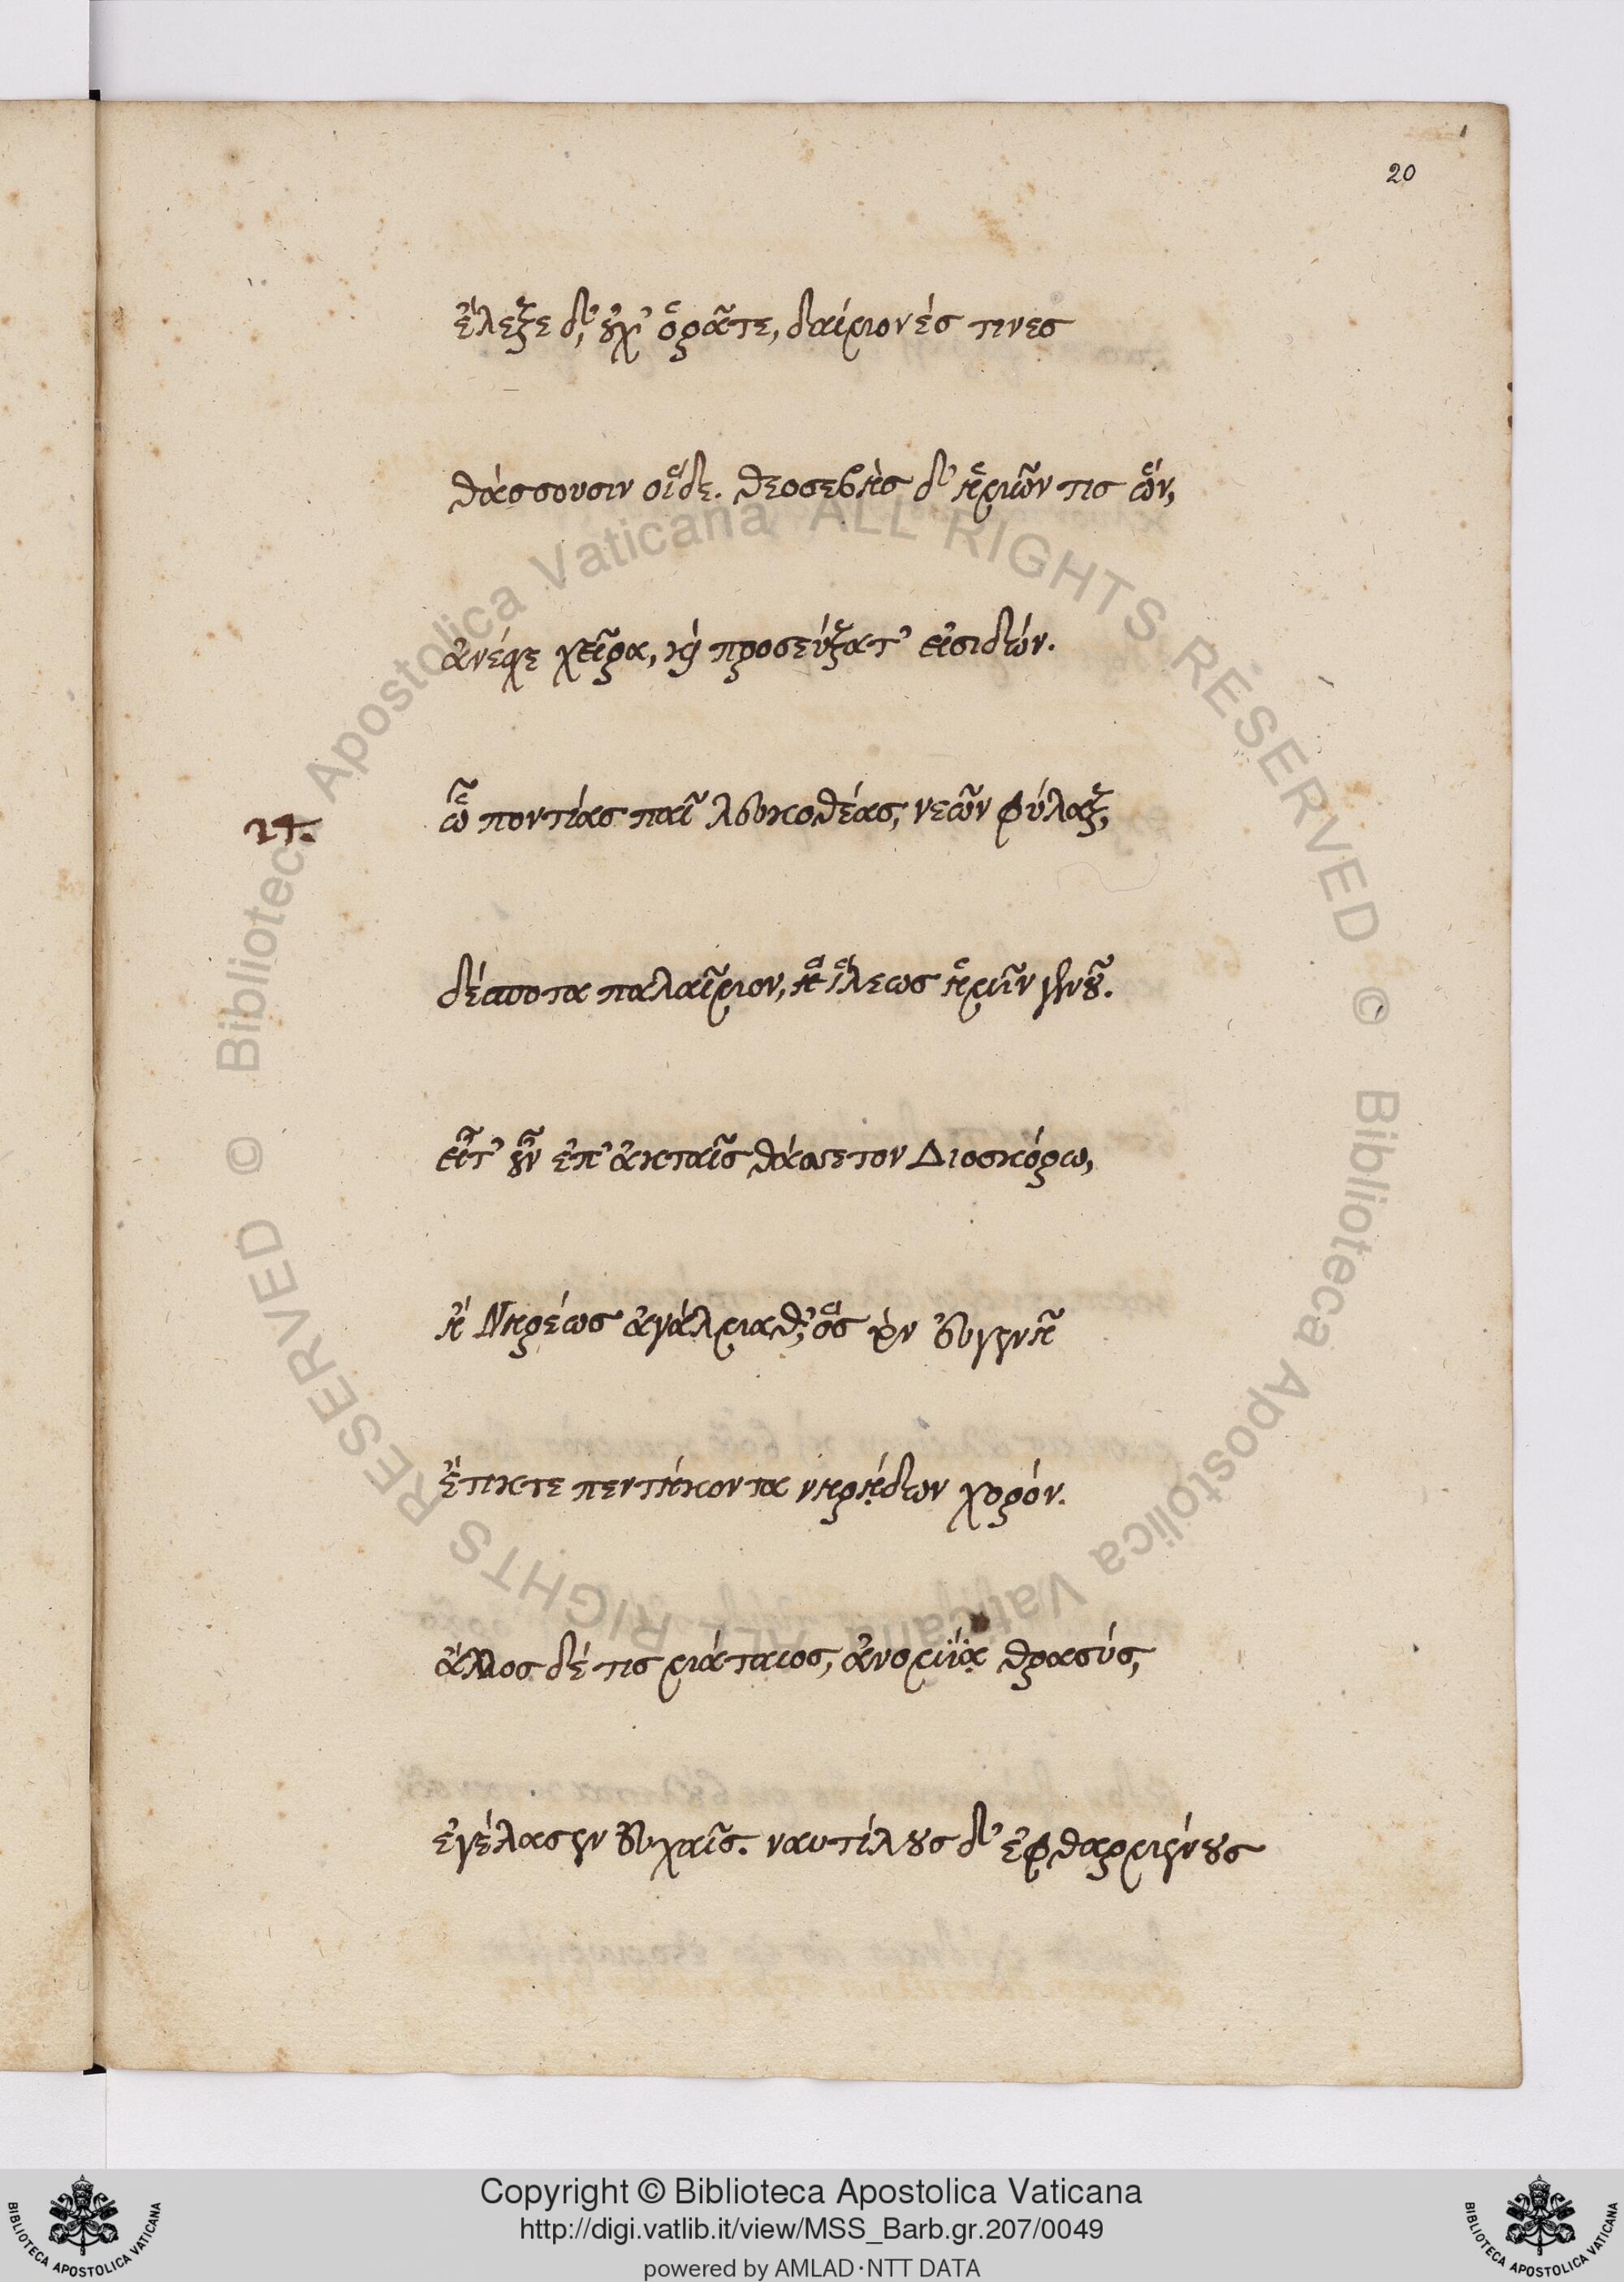 20
ἔλεξε δ', οὐχ' ὁρᾶτε, δαίμονές τινες
θάσσουσιν οἵδε. θεοσεβὴς δ' ἡμῶν τις ὤν,
ἀνέσχε χεῖρα, καὶ προσεύξατ' εἰσιδών.
24.
ὦ ποντίας παῖ λευκοθέας, νεῶν φύλαξ,
δέσποτα παλαῖμον, ἢ ἵλεως ἡμῖν γενοῦ.
εἶτ' οὖν ἐπ' ἀκταῖς θάσσετον Διοσκόρω,
ἢ Νηρέως ἀγάλμαθ', ὃς τὸν εὐγενῆ
ἔτικτε πεντήκοντα νηρῄδων χορόν.
ἄλλος δέ τις μάταιος, ἀνομίᾳ θρασύς,
ἐγέλασεν εὐχαῖς. ναυτίλους δ' ἐφθαρμένους
Copyright © Biblioteca Apostolica Vaticana
http://digi.vatlib.it/view/MSS_Barb.gr.207/0049
powered by AMLAD·NTT DATA
BIBLIOTECA APOSTOLICA VATICANA
BIBLIOTECA APOSTOLICA VATICANA
© Biblioteca Apostolica Vaticana ALL RIGHTS RESERVED
© Biblioteca Apostolica Vaticana ALL RIGHTS RESERVED